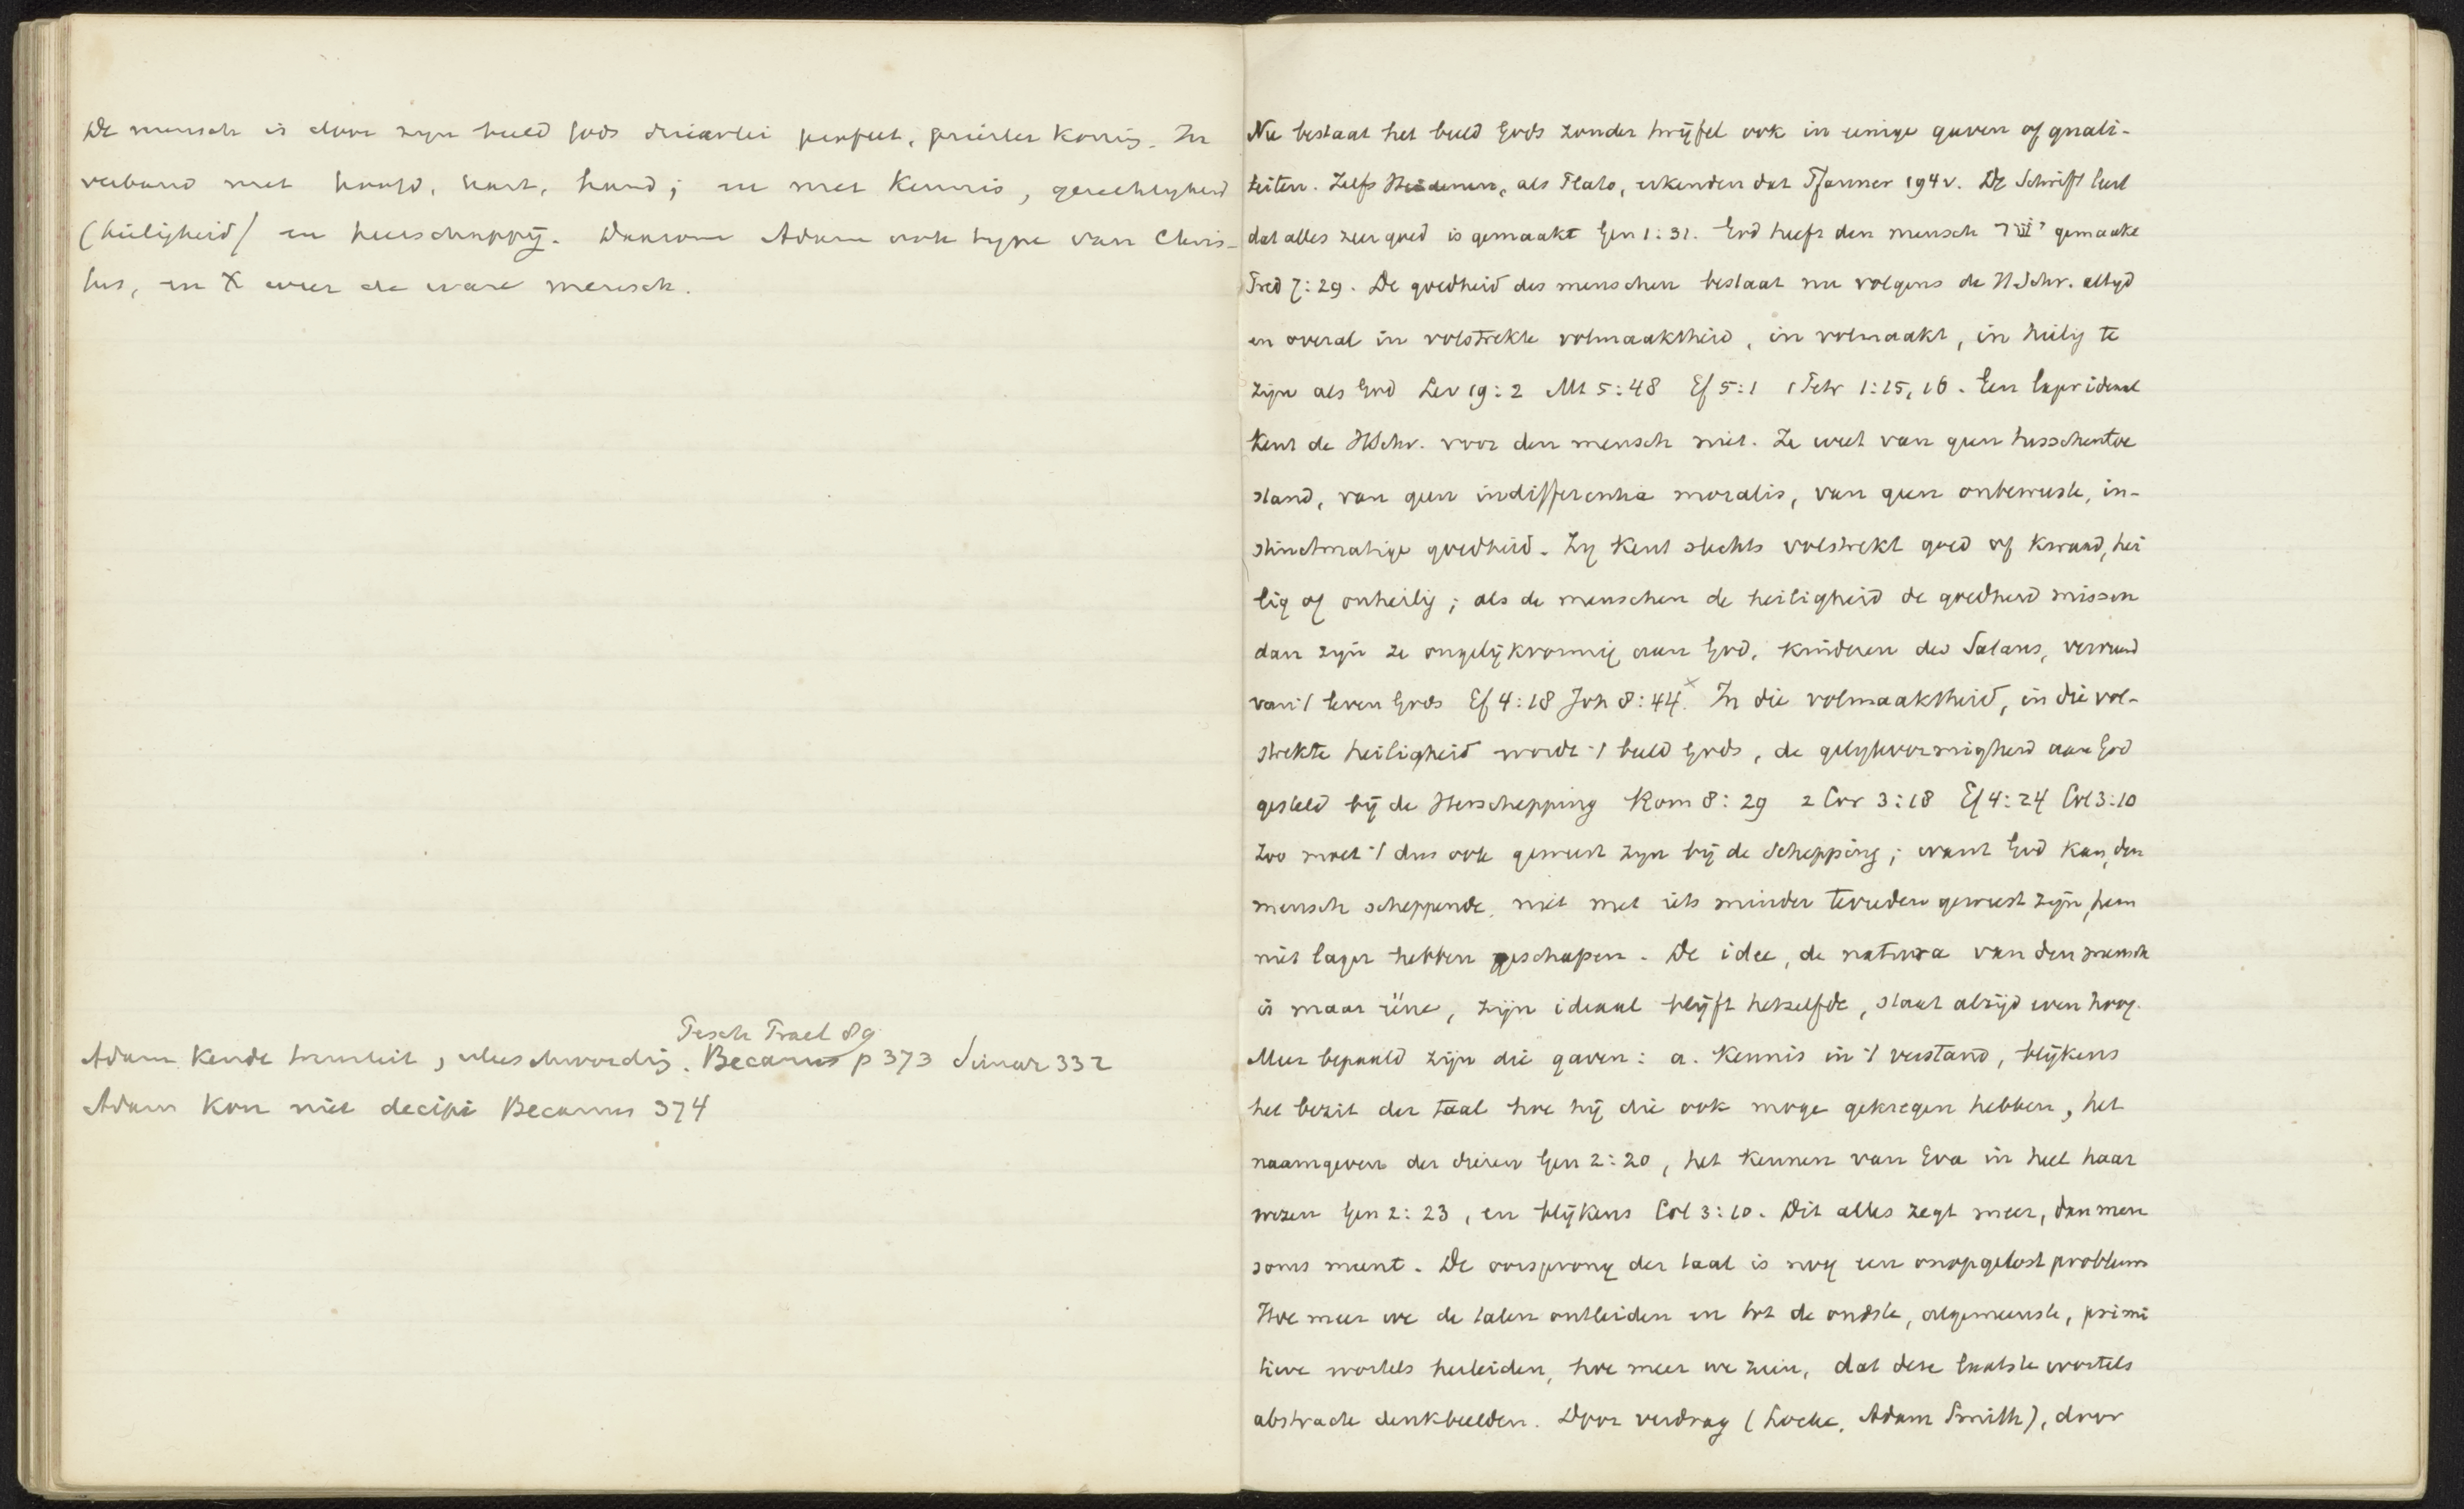 De mensch is door zijn beeld Gods drieërlei profeet, priester koning. In
verband met hoofd, hart, hand; en met kennis, gerechtigheid
(heiligheid) en heerschappij. Daarom Adam ook type van Chris-
tus, en X weer de ware mensch.
Tesch Trael 89
Adam kende triniteit, menschwording. Becanus p 373 Simar 332
Adam kon niet decipi Becanus 374
Nu bestaat het beeld Gods zonder twijfel ook in eenige gaven of quali-
teiten. Zelfs Heidenen, als Plato, erkenden dat Pfanner 194v. De Schrift leert
dat alles zeer goed is gemaakt Gen 1:31. God heeft den mensch ישר gemaakt
Pred 7:29. De goedheid des menschen bestaat nu volgens de H Schr. altijd
en overal in volstrekte volmaaktheid, in volmaakt, in heilig te
zijn als God Lev 19:2 Mt 5:48 Ef 5:1 1 Petr 1:15,16. Een lager ideaal
kent de HSchr. voor den mensch niet. Ze weet van geen tusschentoe
stand, van geen indifferentia moralis, van geen onbewuste, in-
stinctmatige goedheid. Zij kent slechts volstrekt goed of kwaad, hei
lig of onheilig; als de menschen de heiligheid de goedheid missen
dan zijn ze ongelijkvormig aan God, kinderen des Satans, vervreemd
van 't leven Gods Ef 4:18 Joh 8:44.x In die volmaaktheid, in die vol-
strekte heiligheid wordt 't beeld Gods, de gelijkvormigheid aan God
gesteld bij de Herschepping Rom 8:29 2 Cor 3:18 Ef 4:24 Col 3:10
Zoo moet 't dus ook geweest zijn bij de Schepping; want God kan, den
mensch scheppende, niet met iets minder tevreden geweest zijn, hem
niet lager hebben geschapen. De idee, de natura van den mensch
is maar ééne, zijn ideaal blijft hetzelfde, staat altijd even hoog.
Meer bepaald zijn die gaven: a. Kennis in 't verstand, blijkens
het bezit der taal hoe hij die ook moge gekregen hebben, het
naamgeven der dieren Gen 2:20, het kennen van Eva in heel haar
wezen Gen 2:23, en blijkens Col 3:10. Dit alles zegt meer, dan men
soms meent. De oorsprong der taal is nog een onopgelost probleem
Hoe meer we de talen ontleiden en tot de oudste, algemeenste, primi
tieve wortels herleiden, hoe meer we zien, dat deze laatste wortels
abstracte denkbeelden. Door verdrag (Locke, Adam Smith), door